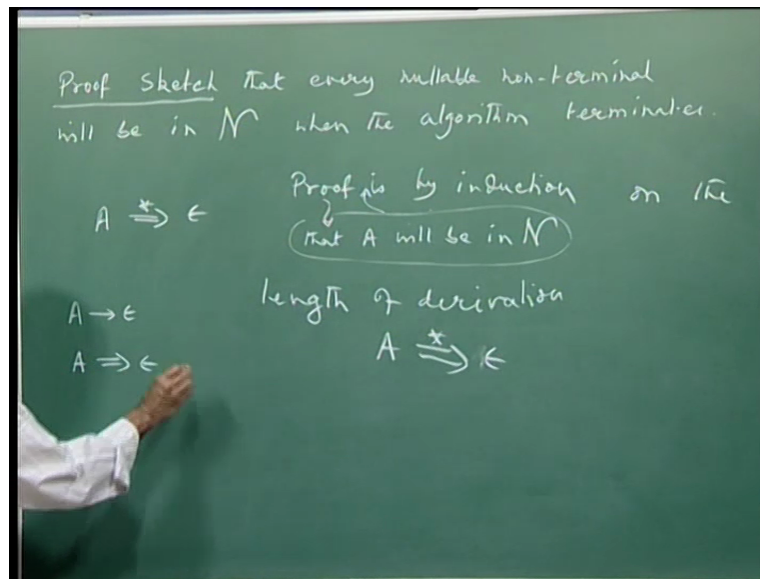 Proof sketch that every nullable non-terminal
will be in N when the algorithm terminates.
Proof is by induction on the
A *⇒ ε
that A will be in N
length of derivation
A → ε
A *⇒ ε
A ⇒ ε